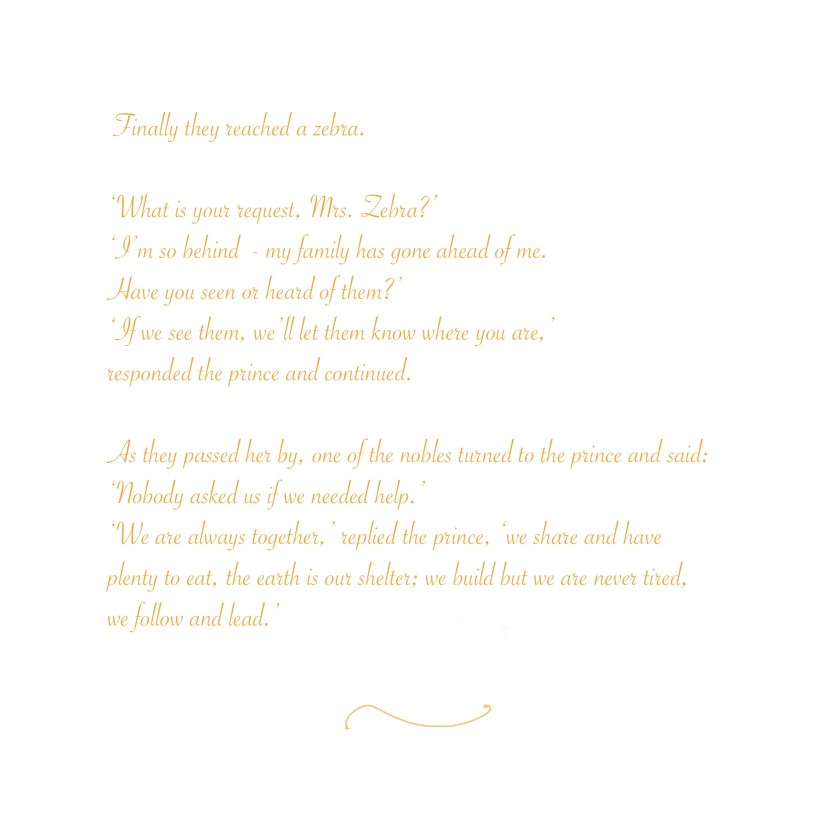 Finally they reached a zebra.
‘What is your request, Mrs. Zebra?’
‘I’m so behind - my family has gone ahead of me.
Have you seen or heard of them?’
‘If we see them, we’ll let them know where you are,’
responded the prince and continued.
As they passed her by, one of the nobles turned to the prince and said:
‘Nobody asked us if we needed help.’
‘We are always together,’ replied the prince, ‘we share and have
plenty to eat, the earth is our shelter; we build but we are never tired,
we follow and lead.’